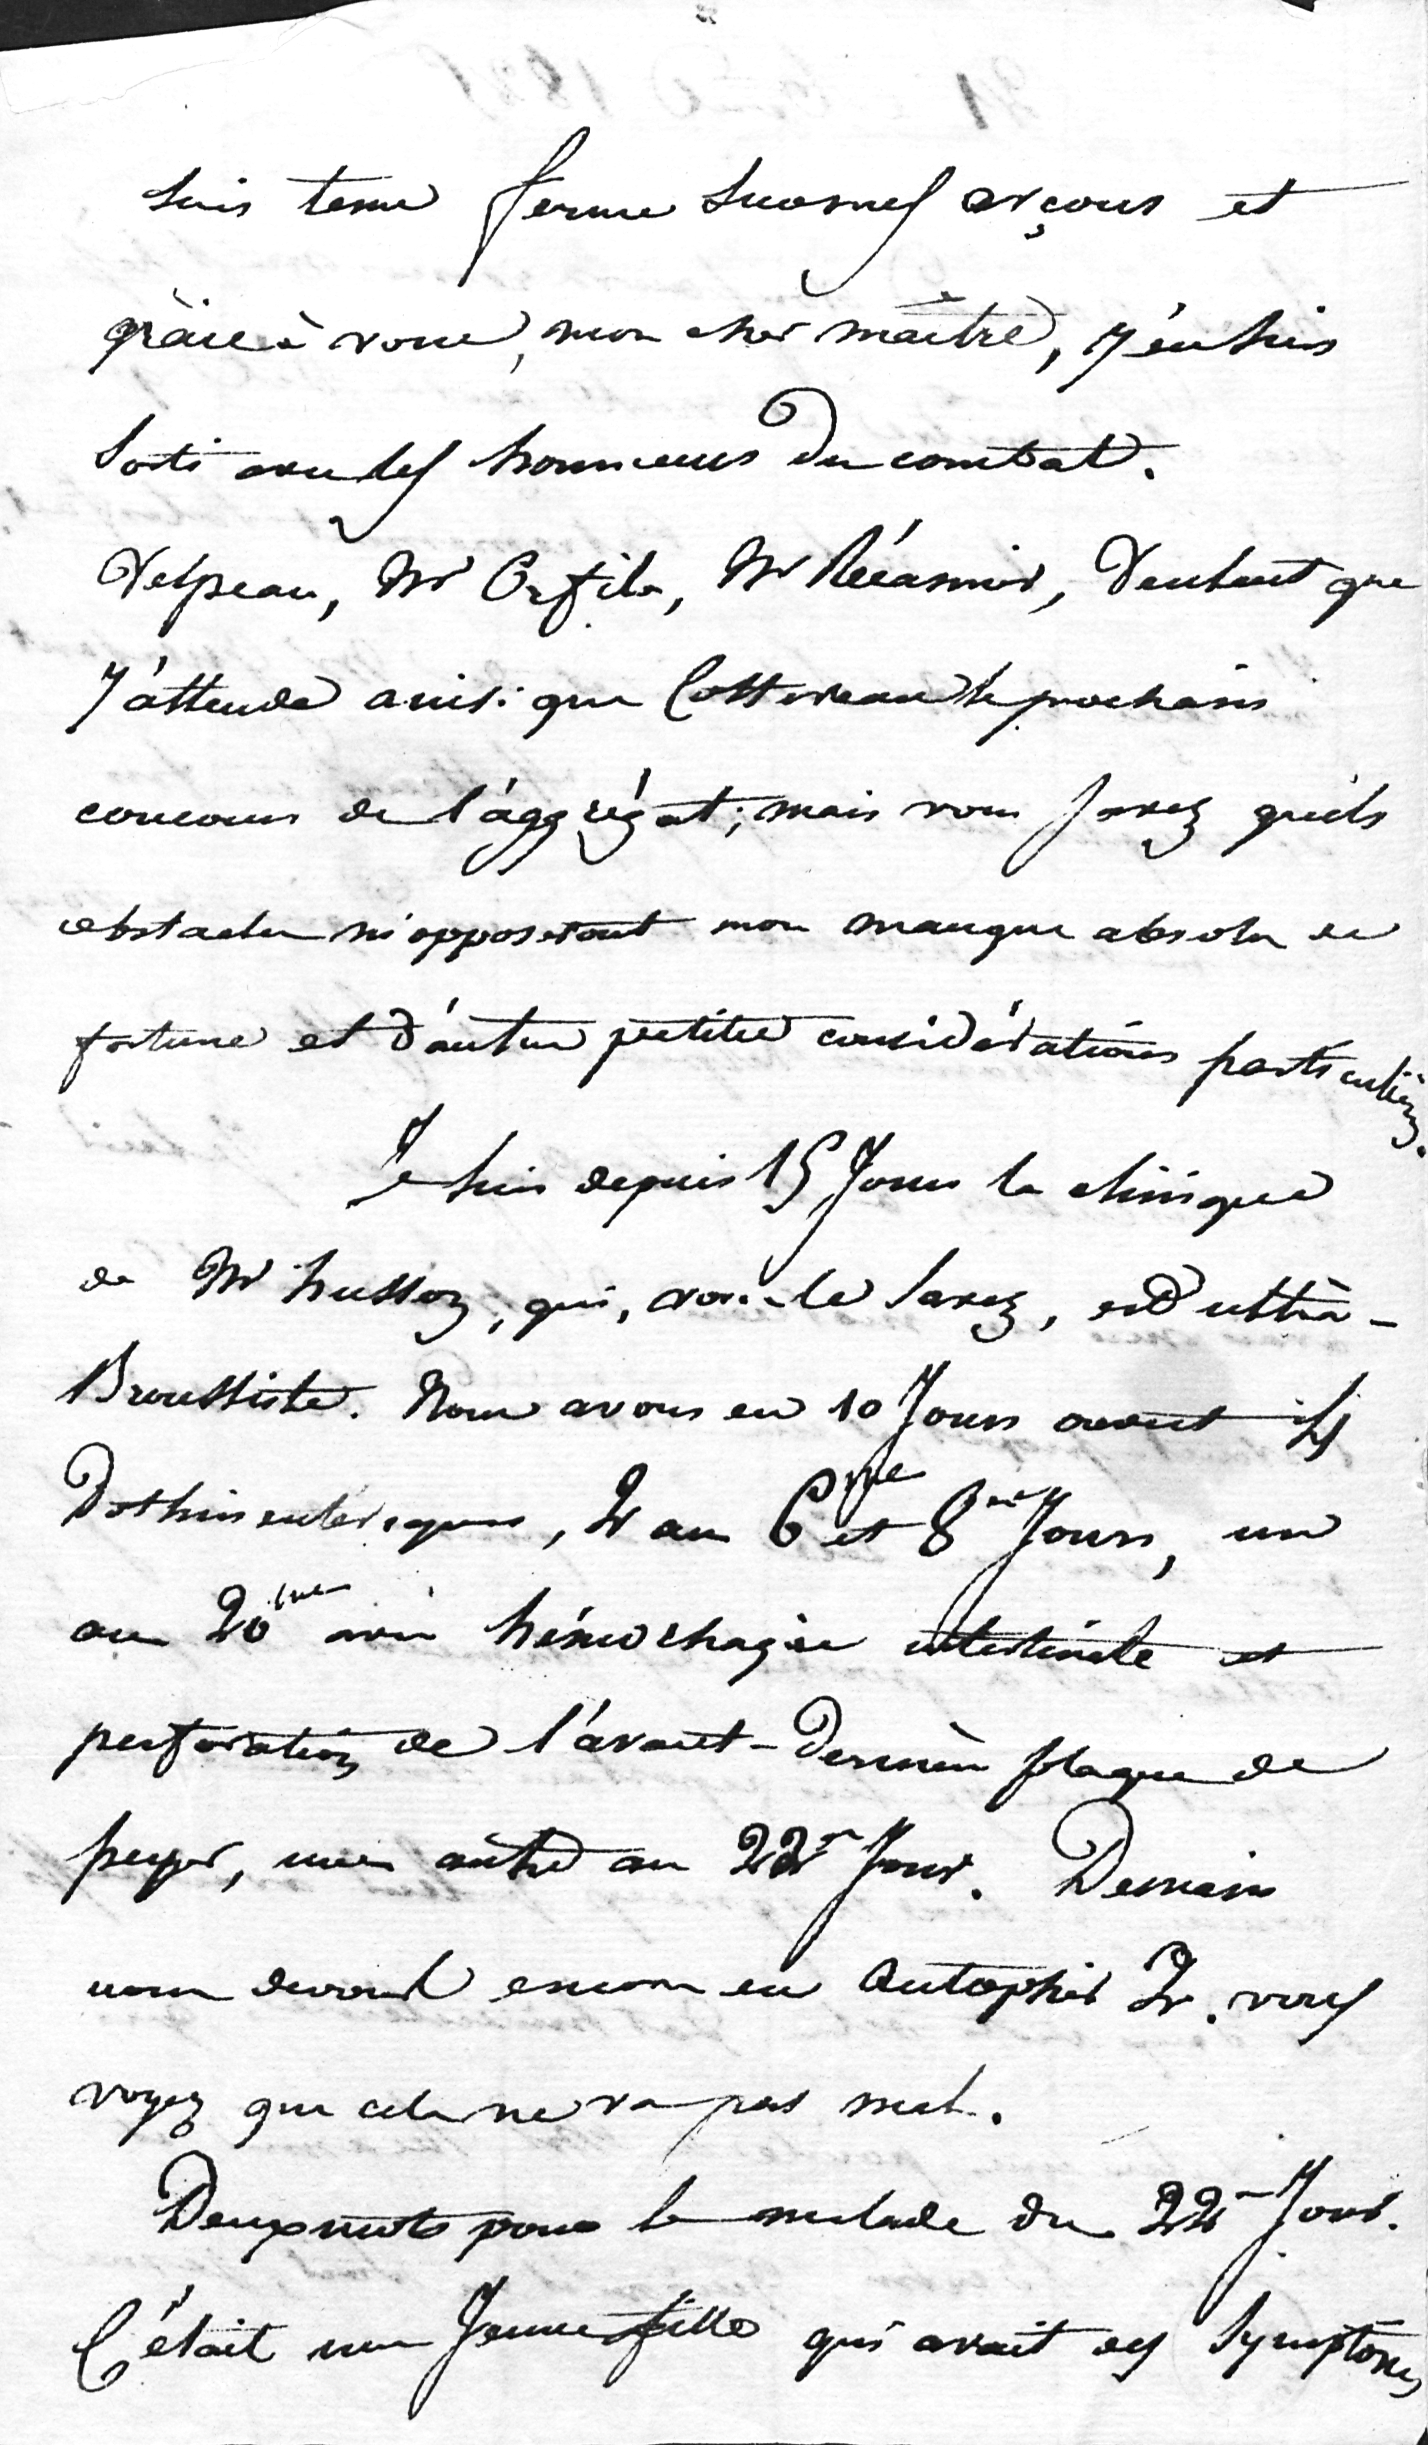 suis tenu ferme sur mes arçons et
grâce à vous, mon cher maître, j'en suis
sorti avec les honneurs du combat.
Velpeau, Mr Orfila, Mr Récamier, veulent que
j'attende ainsi que Cottereau le prochain
concours de l'aggrégat; mais vous savez quels
obstacles m'opposeront mon manque absolu de
fortune et d'autres petites considérations particulières.
Je suis depuis 15 jours la clinique
de Mr husson, qui, vous le savez, est ultra-
Broussiste. Nous avons eu 10 jours ouvert
Dothinenteriques, 2 au 6me et 8me jours, un
au 20me avec hémorhagie intestinale et
perforation de l'avant-dernière plaque de
peyer, un autre au 22e jour. Demain
nous devons encore en autopsier 2. vous
voyez que cela ne va pas mal.
Deux mots pour le malade du 22e jour.
C'était une jeune fille qui avait des symptomes